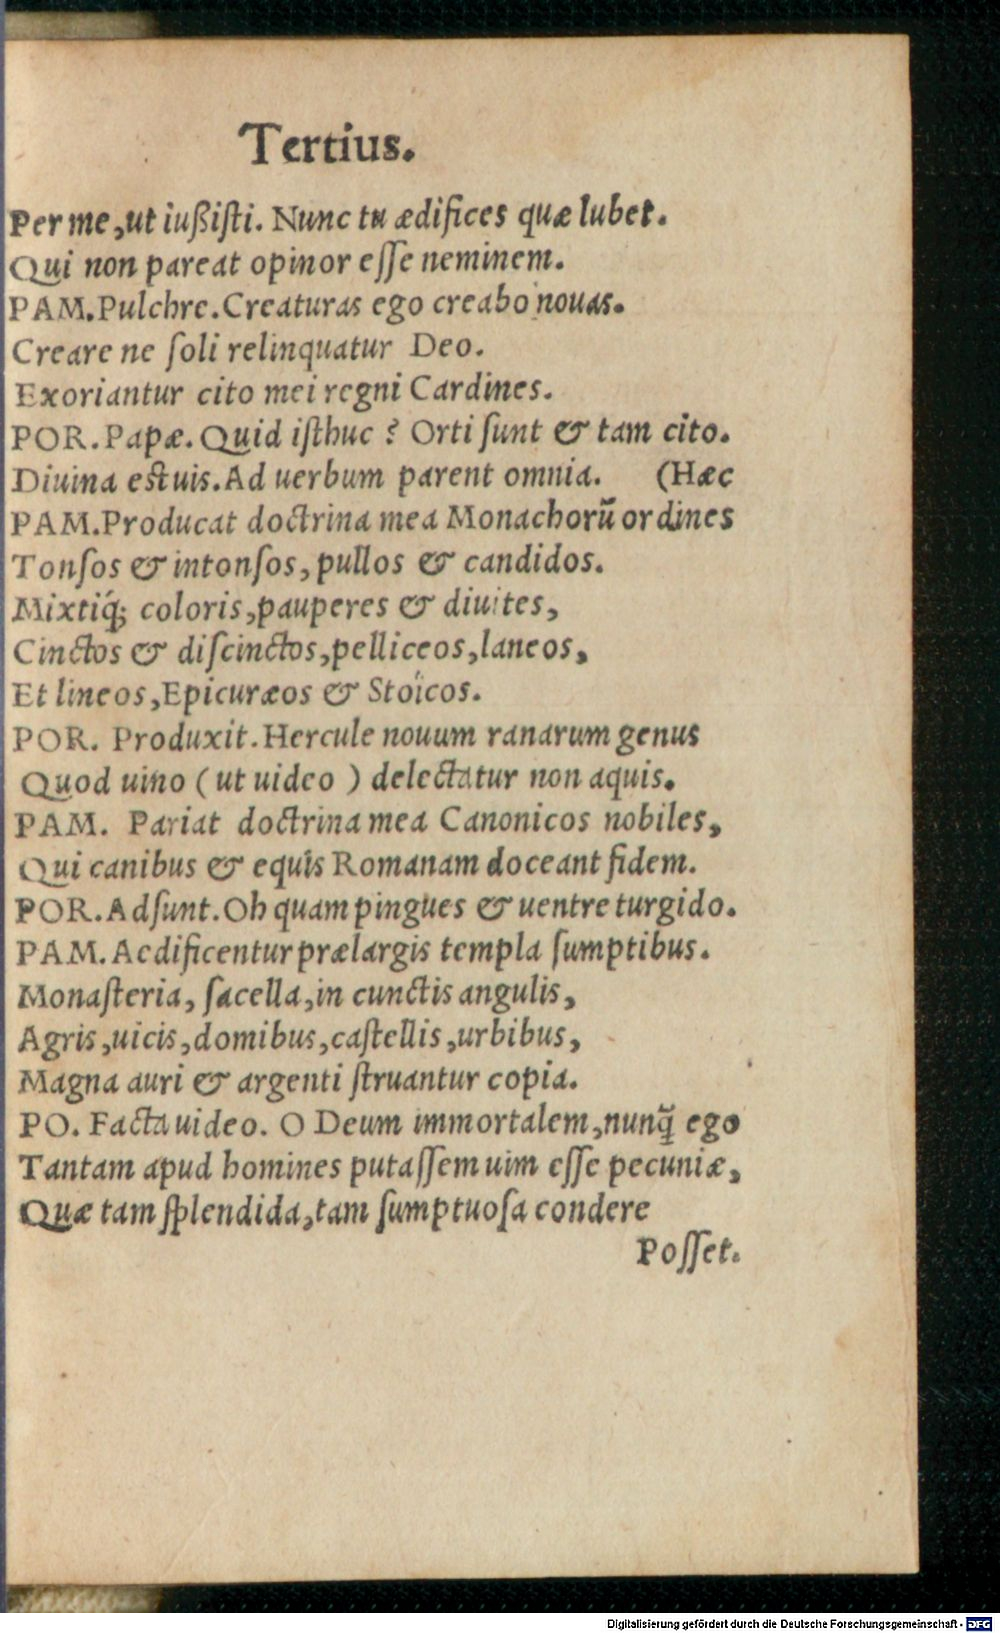 Tertius.
Per me, ut iußiſti. Nunc tu ædifices quæ lubet.
Qui non pareat opinor eſſe neminem.
PAM. Pulchre. Creaturas ego creabo nouas.
Creare ne ſoli relinquatur Deo.
Exoriantur cito mei regni Cardines.
POR. Papæ. Quid iſthuc? Orti ſunt & tam cito.
Diuina est uis. Ad uerbum parent omnia. (Hæc
PAM. Producat doctrina mea Monachorũ ordines
Tonſos & intonſos, pullos & candidos.
Mixtiq́; coloris, pauperes & diuites,
Cinctos & diſcinctos, pelliceos, laneos,
Et lineos, Epicuræos & Stoïcos.
POR. Produxit. Hercule nouum ranarum genus
Quod uino (ut uideo) delectatur non aquis.
PAM. Pariat doctrina mea Canonicos nobiles,
Qui canibus & equis Romanam doceant fidem.
POR. Adſunt. Oh quam pingues & uentre turgido.
PAM. Aedificentur prælargis templa ſumptibus.
Monaſteria, ſacella, in cunctis angulis,
Agris, uicis, domibus, caſtellis, urbibus,
Magna auri & argenti ſtruantur copia.
PO. Facta uideo. O Deum immortalem, nunq̃ ego
Tantam apud homines putaſſem uim eſſe pecuniæ,
Quæ tam ſplendida, tam ſumptuoſa condere
Poſſet.
Digitalisierung gefördert durch die Deutsche Forschungsgemeinschaft - DFG